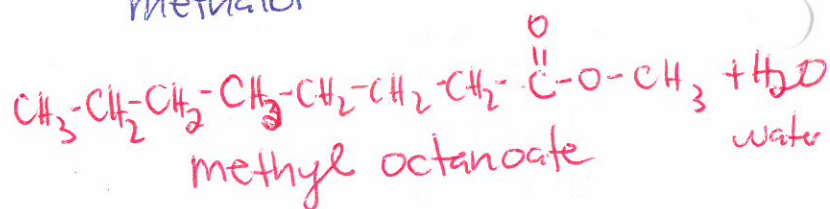 methanol
O
||
CH₃-CH₂-CH₂-CH₂-CH₂-CH₂-CH₂-C-O-CH₃ + H₂O
methyl octanoate water